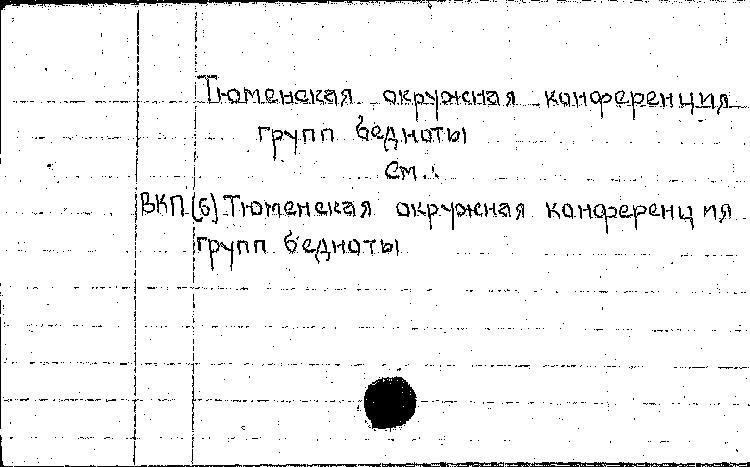 Тюменская окружная конференция
групп бедноты
См.:
ВКП(б) Тюменская окружная конференция
групп бедноты